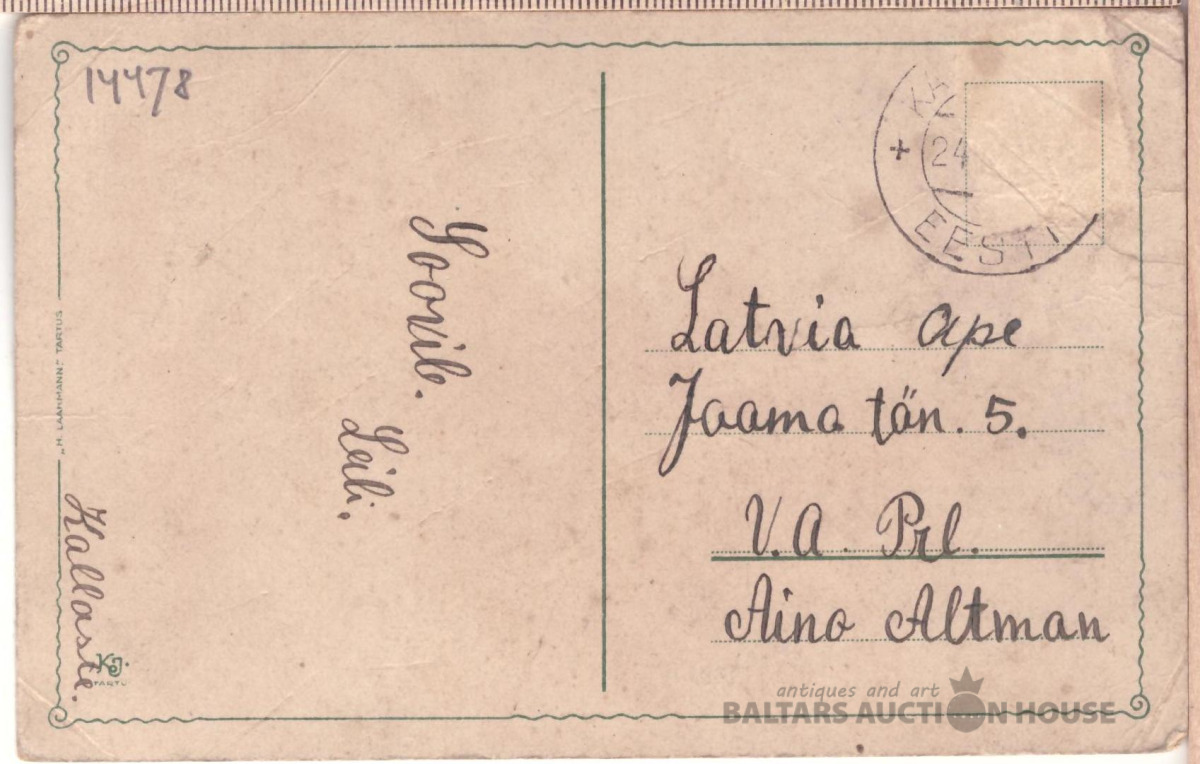 14478
Soovib.
Leili.
Kallaste.
„H. LAAKMANN" TARTUS
KJ.
TARTU
24
EESTI
Latvia Ape
Jaama tän. 5.
V.A. Prl.
Aino Altman
antiques and art
BALTARS AUCTION HOUSE